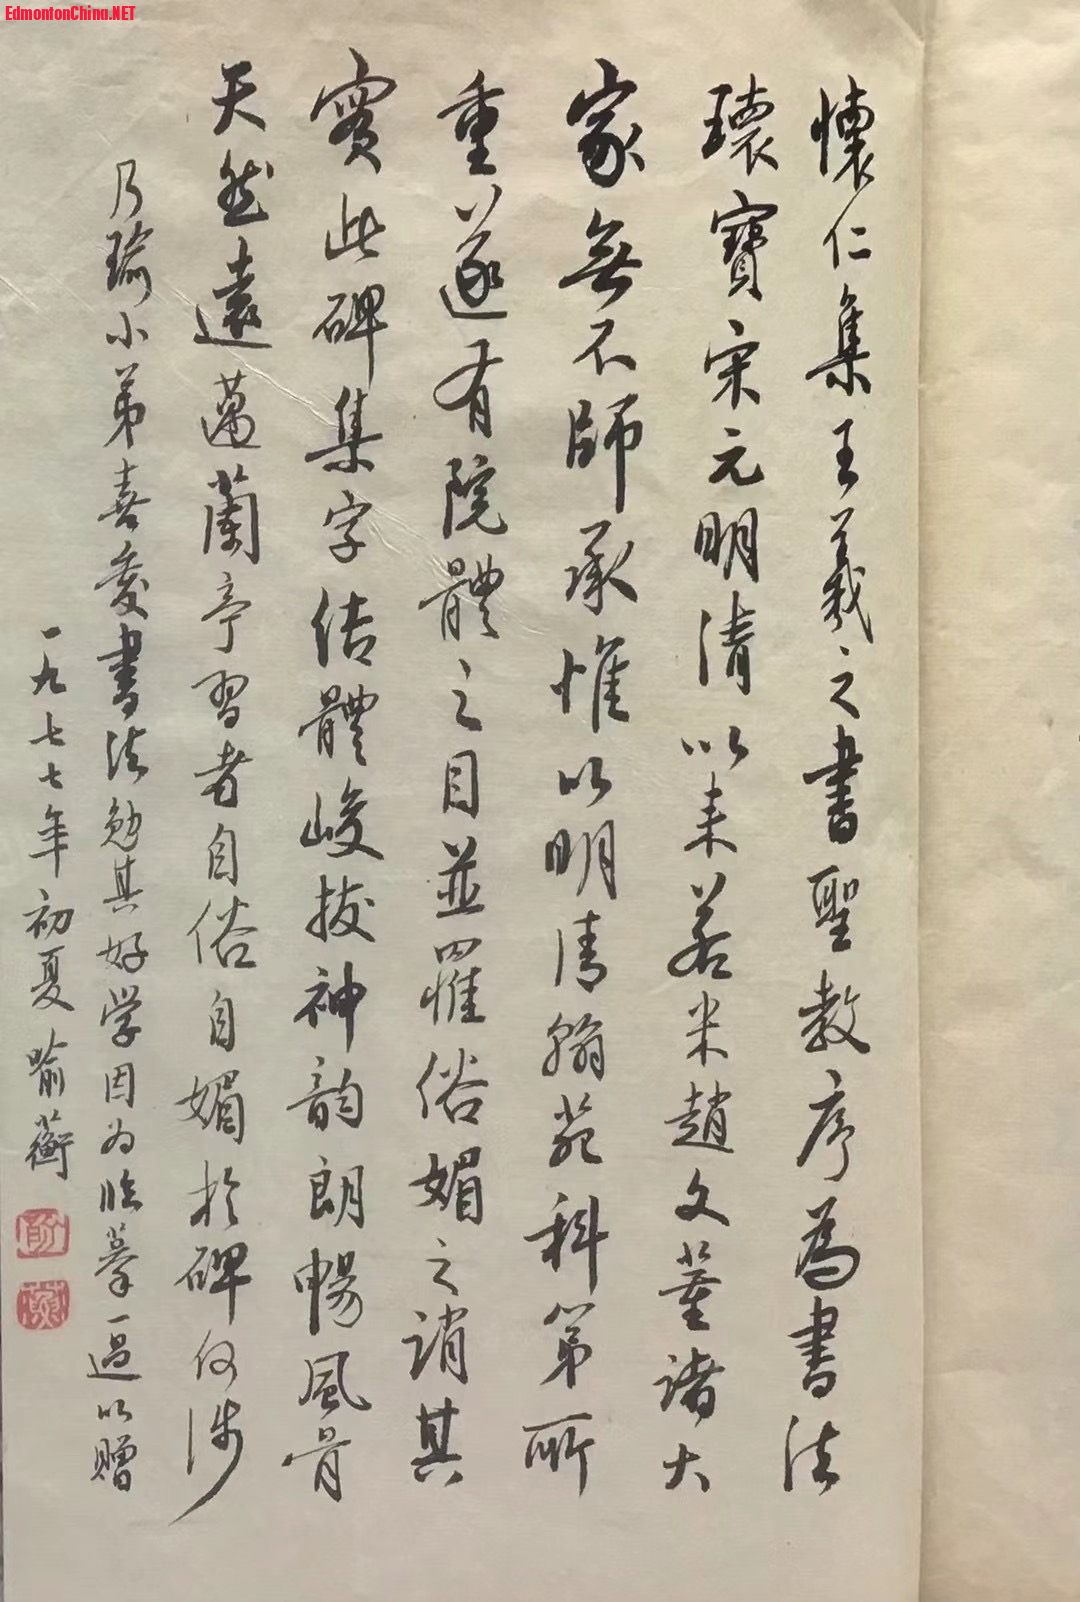 EdmontonChina.NET
懷仁集王羲之書聖教序為書法
瓌寶宋元明清以来若米趙文董諸大
家無不師承惟以明清翰苑科第所
重遂有院體之目並罹俗媚之誚其
實此碑集字结體峻拔神韵朗暢風骨
天然遠邁蘭亭習者自俗自媚於碑何涉
乃瑜小弟喜爱書法勉其好学因为临摹一過以赠
一九七七年初夏喻蘅